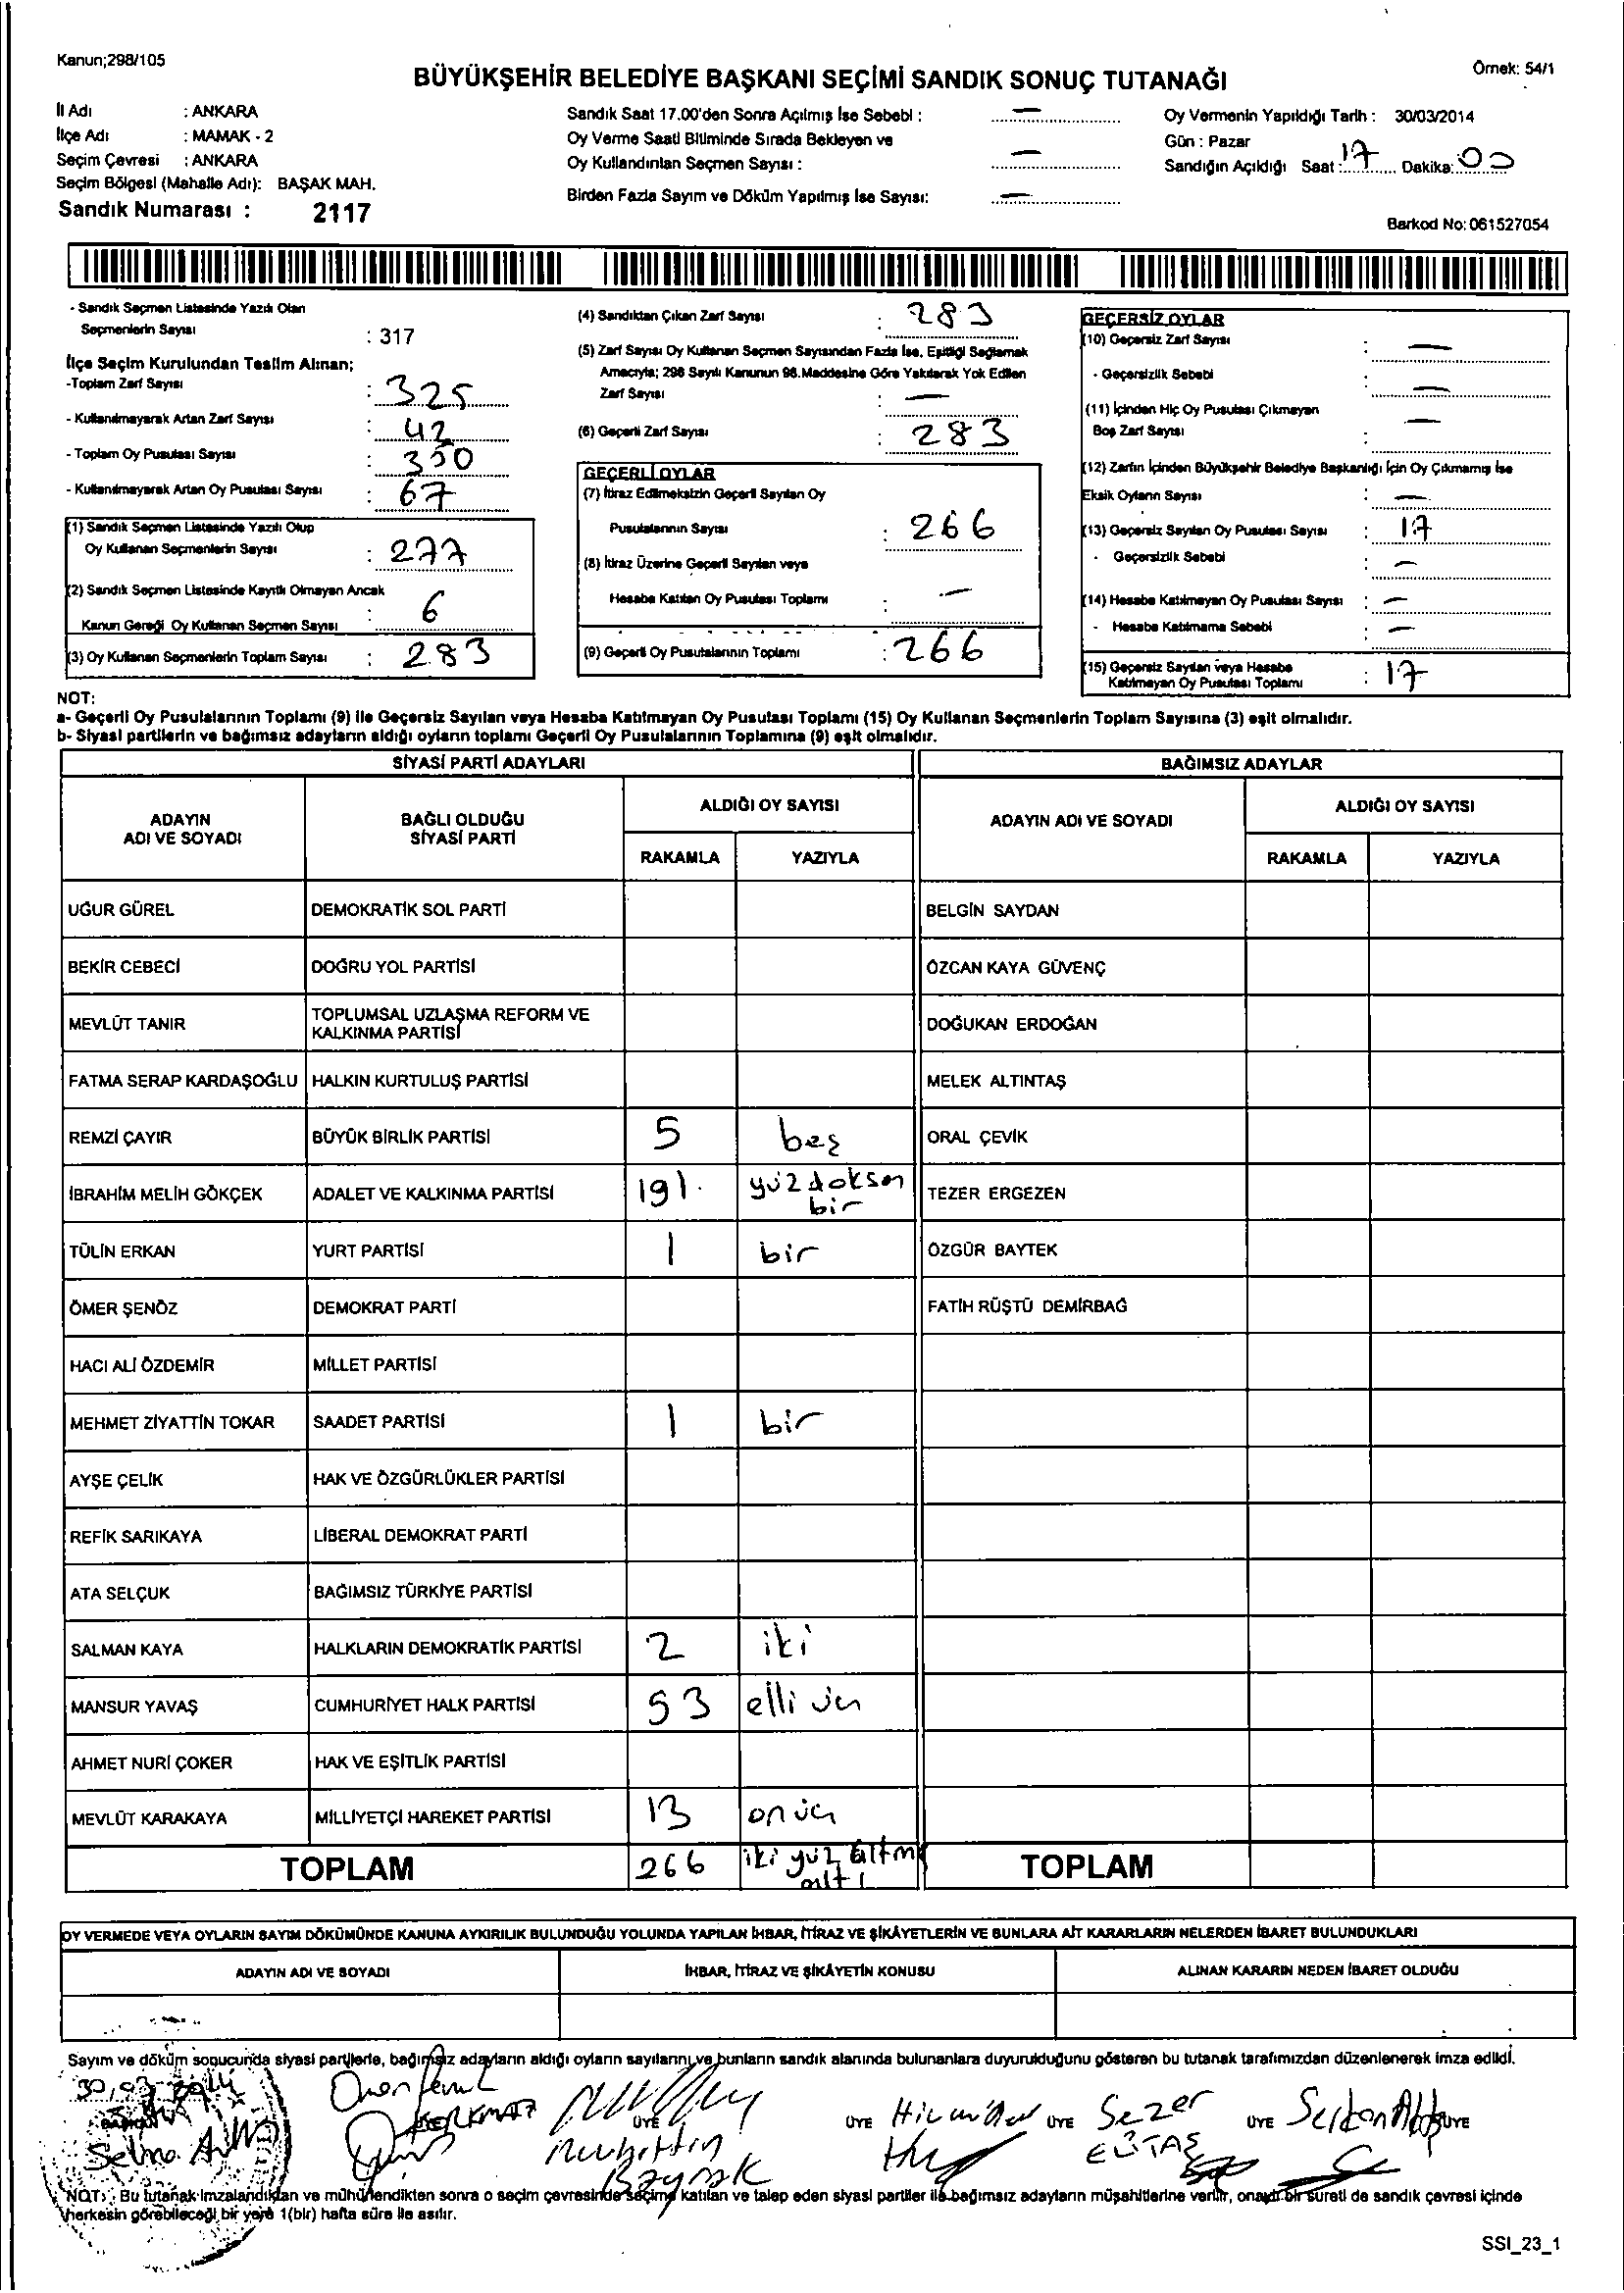 Kanun;298/105
Örnek: 54/1
BÜYÜKŞEHİR BELEDİYE BAŞKANI SEÇİMİ SANDIK SONUÇ TUTANAĞI
İl Adı : ANKARA
İlçe Adı : MAMAK - 2
Seçim Çevresi : ANKARA
Seçim Bölgesi (Mahalle Adı): BAŞAK MAH.
Sandık Numarası : 2117
Sandık Saat 17.00'den Sonra Açılmış İse Sebebi : —
Oy Verme Saati Bitiminde Sırada Bekleyen ve
Oy Kullandırılan Seçmen Sayısı : —
Birden Fazla Sayım ve Döküm Yapılmış İse Sayısı: —
Oy Vermenin Yapıldığı Tarih : 30/03/2014
Gün : Pazar
Sandığın Açıldığı Saat : 17 Dakika: 00
Barkod No: 061527054
- Sandık Seçmen Listesinde Yazılı Olan
Seçmenlerin Sayısı : 317
İlçe Seçim Kurulundan Teslim Alınan;
-Toplam Zarf Sayısı : 325
- Kullanılmayarak Artan Zarf Sayısı : 42
- Toplam Oy Pusulası Sayısı : 350
- Kullanılmayarak Artan Oy Pusulası Sayısı : 67
(1) Sandık Seçmen Listesinde Yazılı Olup
Oy Kullanan Seçmenlerin Sayısı : 277
(2) Sandık Seçmen Listesinde Kayıtlı Olmayan Ancak
Kanun Gereği Oy Kullanan Seçmen Sayısı : 6
(3) Oy Kullanan Seçmenlerin Toplam Sayısı : 283
(4) Sandıktan Çıkan Zarf Sayısı : 283
(5) Zarf Sayısı Oy Kullanan Seçmen Sayısından Fazla İse, Eşitliği Sağlamak
Amacıyla; 298 Sayılı Kanunun 98.Maddesine Göre Yakılarak Yok Edilen
Zarf Sayısı : —
(6) Geçerli Zarf Sayısı : 283
GEÇERLİ OYLAR
(7) İtiraz Edilmeksizin Geçerli Sayılan Oy
Pusulalarının Sayısı : 266
(8) İtiraz Üzerine Geçerli Sayılan veya
Hesaba Katılan Oy Pusulası Toplamı : —
(9) Geçerli Oy Pusulalarının Toplamı : 266
GEÇERSİZ OYLAR
(10) Geçersiz Zarf Sayısı : —
- Geçersizlik Sebebi : —
(11) İçinden Hiç Oy Pusulası Çıkmayan
Boş Zarf Sayısı : —
(12) Zarfın İçinden Büyükşehir Belediye Başkanlığı İçin Oy Çıkmamış İse
Eksik Oyların Sayısı : —
(13) Geçersiz Sayılan Oy Pusulası Sayısı : 17
- Geçersizlik Sebebi : —
(14) Hesaba Katılmayan Oy Pusulası Sayısı : —
- Hesaba Katılmama Sebebi : —
(15) Geçersiz Sayılan veya Hesaba
Katılmayan Oy Pusulası Toplamı : 17
NOT:
a- Geçerli Oy Pusulalarının Toplamı (9) ile Geçersiz Sayılan veya Hesaba Katılmayan Oy Pusulası Toplamı (15) Oy Kullanan Seçmenlerin Toplam Sayısına (3) eşit olmalıdır.
b- Siyasi partilerin ve bağımsız adayların aldığı oyların toplamı Geçerli Oy Pusulalarının Toplamına (9) eşit olmalıdır.
SİYASİ PARTİ ADAYLARI BAĞIMSIZ ADAYLAR
ADAYIN ADI VE SOYADI BAĞLI OLDUĞU SİYASİ PARTİ ALDIĞI OY SAYISI ADAYIN ADI VE SOYADI ALDIĞI OY SAYISI
RAKAMLA YAZIYLA RAKAMLA YAZIYLA
UĞUR GÜREL DEMOKRATİK SOL PARTİ BELGİN SAYDAN
BEKİR CEBECİ DOĞRU YOL PARTİSİ ÖZCAN KAYA GÜVENÇ
MEVLÜT TANIR TOPLUMSAL UZLAŞMA REFORM VE KALKINMA PARTİSİ DOĞUKAN ERDOĞAN
FATMA SERAP KARDAŞOĞLU HALKIN KURTULUŞ PARTİSİ MELEK ALTINTAŞ
REMZİ ÇAYIR BÜYÜK BİRLİK PARTİSİ 5 beş ORAL ÇEVİK
İBRAHİM MELİH GÖKÇEK ADALET VE KALKINMA PARTİSİ 191 yüz doksan bir TEZER ERGEZEN
TÜLİN ERKAN YURT PARTİSİ 1 bir ÖZGÜR BAYTEK
ÖMER ŞENÖZ DEMOKRAT PARTİ FATİH RÜŞTÜ DEMİRBAĞ
HACI ALİ ÖZDEMİR MİLLET PARTİSİ
MEHMET ZİYATTİN TOKAR SAADET PARTİSİ 1 bir
AYŞE ÇELİK HAK VE ÖZGÜRLÜKLER PARTİSİ
REFİK SARIKAYA LİBERAL DEMOKRAT PARTİ
ATA SELÇUK BAĞIMSIZ TÜRKİYE PARTİSİ
SALMAN KAYA HALKLARIN DEMOKRATİK PARTİSİ 2 iki
MANSUR YAVAŞ CUMHURİYET HALK PARTİSİ 53 elli üç
AHMET NURİ ÇOKER HAK VE EŞİTLİK PARTİSİ
MEVLÜT KARAKAYA MİLLİYETÇİ HAREKET PARTİSİ 13 on üç
TOPLAM 266 iki yüz altmış altı TOPLAM
OY VERMEDE VEYA OYLARIN SAYIM DÖKÜMÜNDE KANUNA AYKIRILIK BULUNDUĞU YOLUNDA YAPILAN İHBAR, İTİRAZ VE ŞİKÂYETLERİN VE BUNLARA AİT KARARLARIN NELERDEN İBARET BULUNDUKLARI
ADAYIN ADI VE SOYADI İHBAR, İTİRAZ VE ŞİKÂYETİN KONUSU ALINAN KARARIN NEDEN İBARET OLDUĞU
Sayım ve döküm sonucunda siyasi partilerle, bağımsız adayların aldığı oyların sayılarını ve bunların sandık alanında bulunanlara duyurulduğunu gösteren bu tutanak tarafımızdan düzenlenerek imza edildi.
30.03.2014
BAŞKAN ÜYE ÜYE ÜYE Sezer ÜYE ÜYE
Selma Muhittin ELİTAŞ
Bayrak
NOT: Bu tutanak imzalandıktan ve mühürlendikten sonra o seçim çevresinde seçime katılan ve talep eden siyasi partiler ile bağımsız adayların müşahitlerine verilir, onaylı bir sureti de sandık çevresi içinde
herkesin görebileceği bir yere 1(bir) hafta süre ile asılır.
SSI_23_1